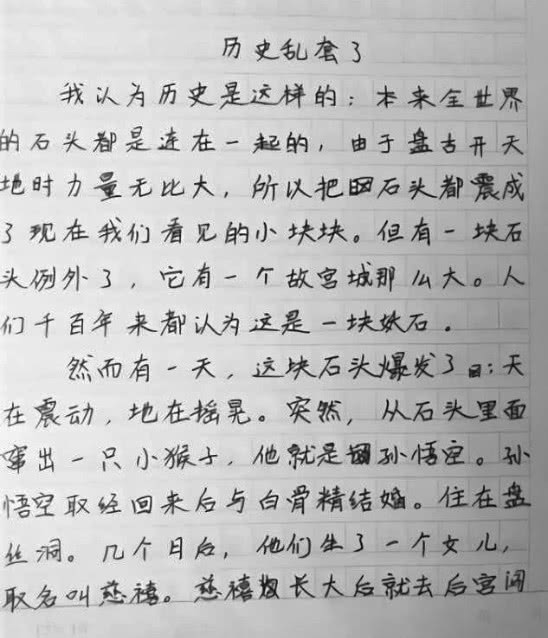 历史乱套了
我认为历史是这样的：本来全世界
的石头都是连在一起的，由于盘古开天
地时力量无比大，所以把石头都震成
了现在我们看见的小块块。但有一块石
头例外了，它有一个故宫城那么大。人
们千百年来都认为这是一块妖石。
然而有一天，这块石头爆发了：天
在震动，地在摇晃。突然，从石头里面
窜出一只小猴子，他就是孙悟空。孙
悟空取经回来后与白骨精结婚。住在盘
丝洞。几个日后，他们生了一个女儿，
取名叫慈禧。慈禧长大后就去后宫闯